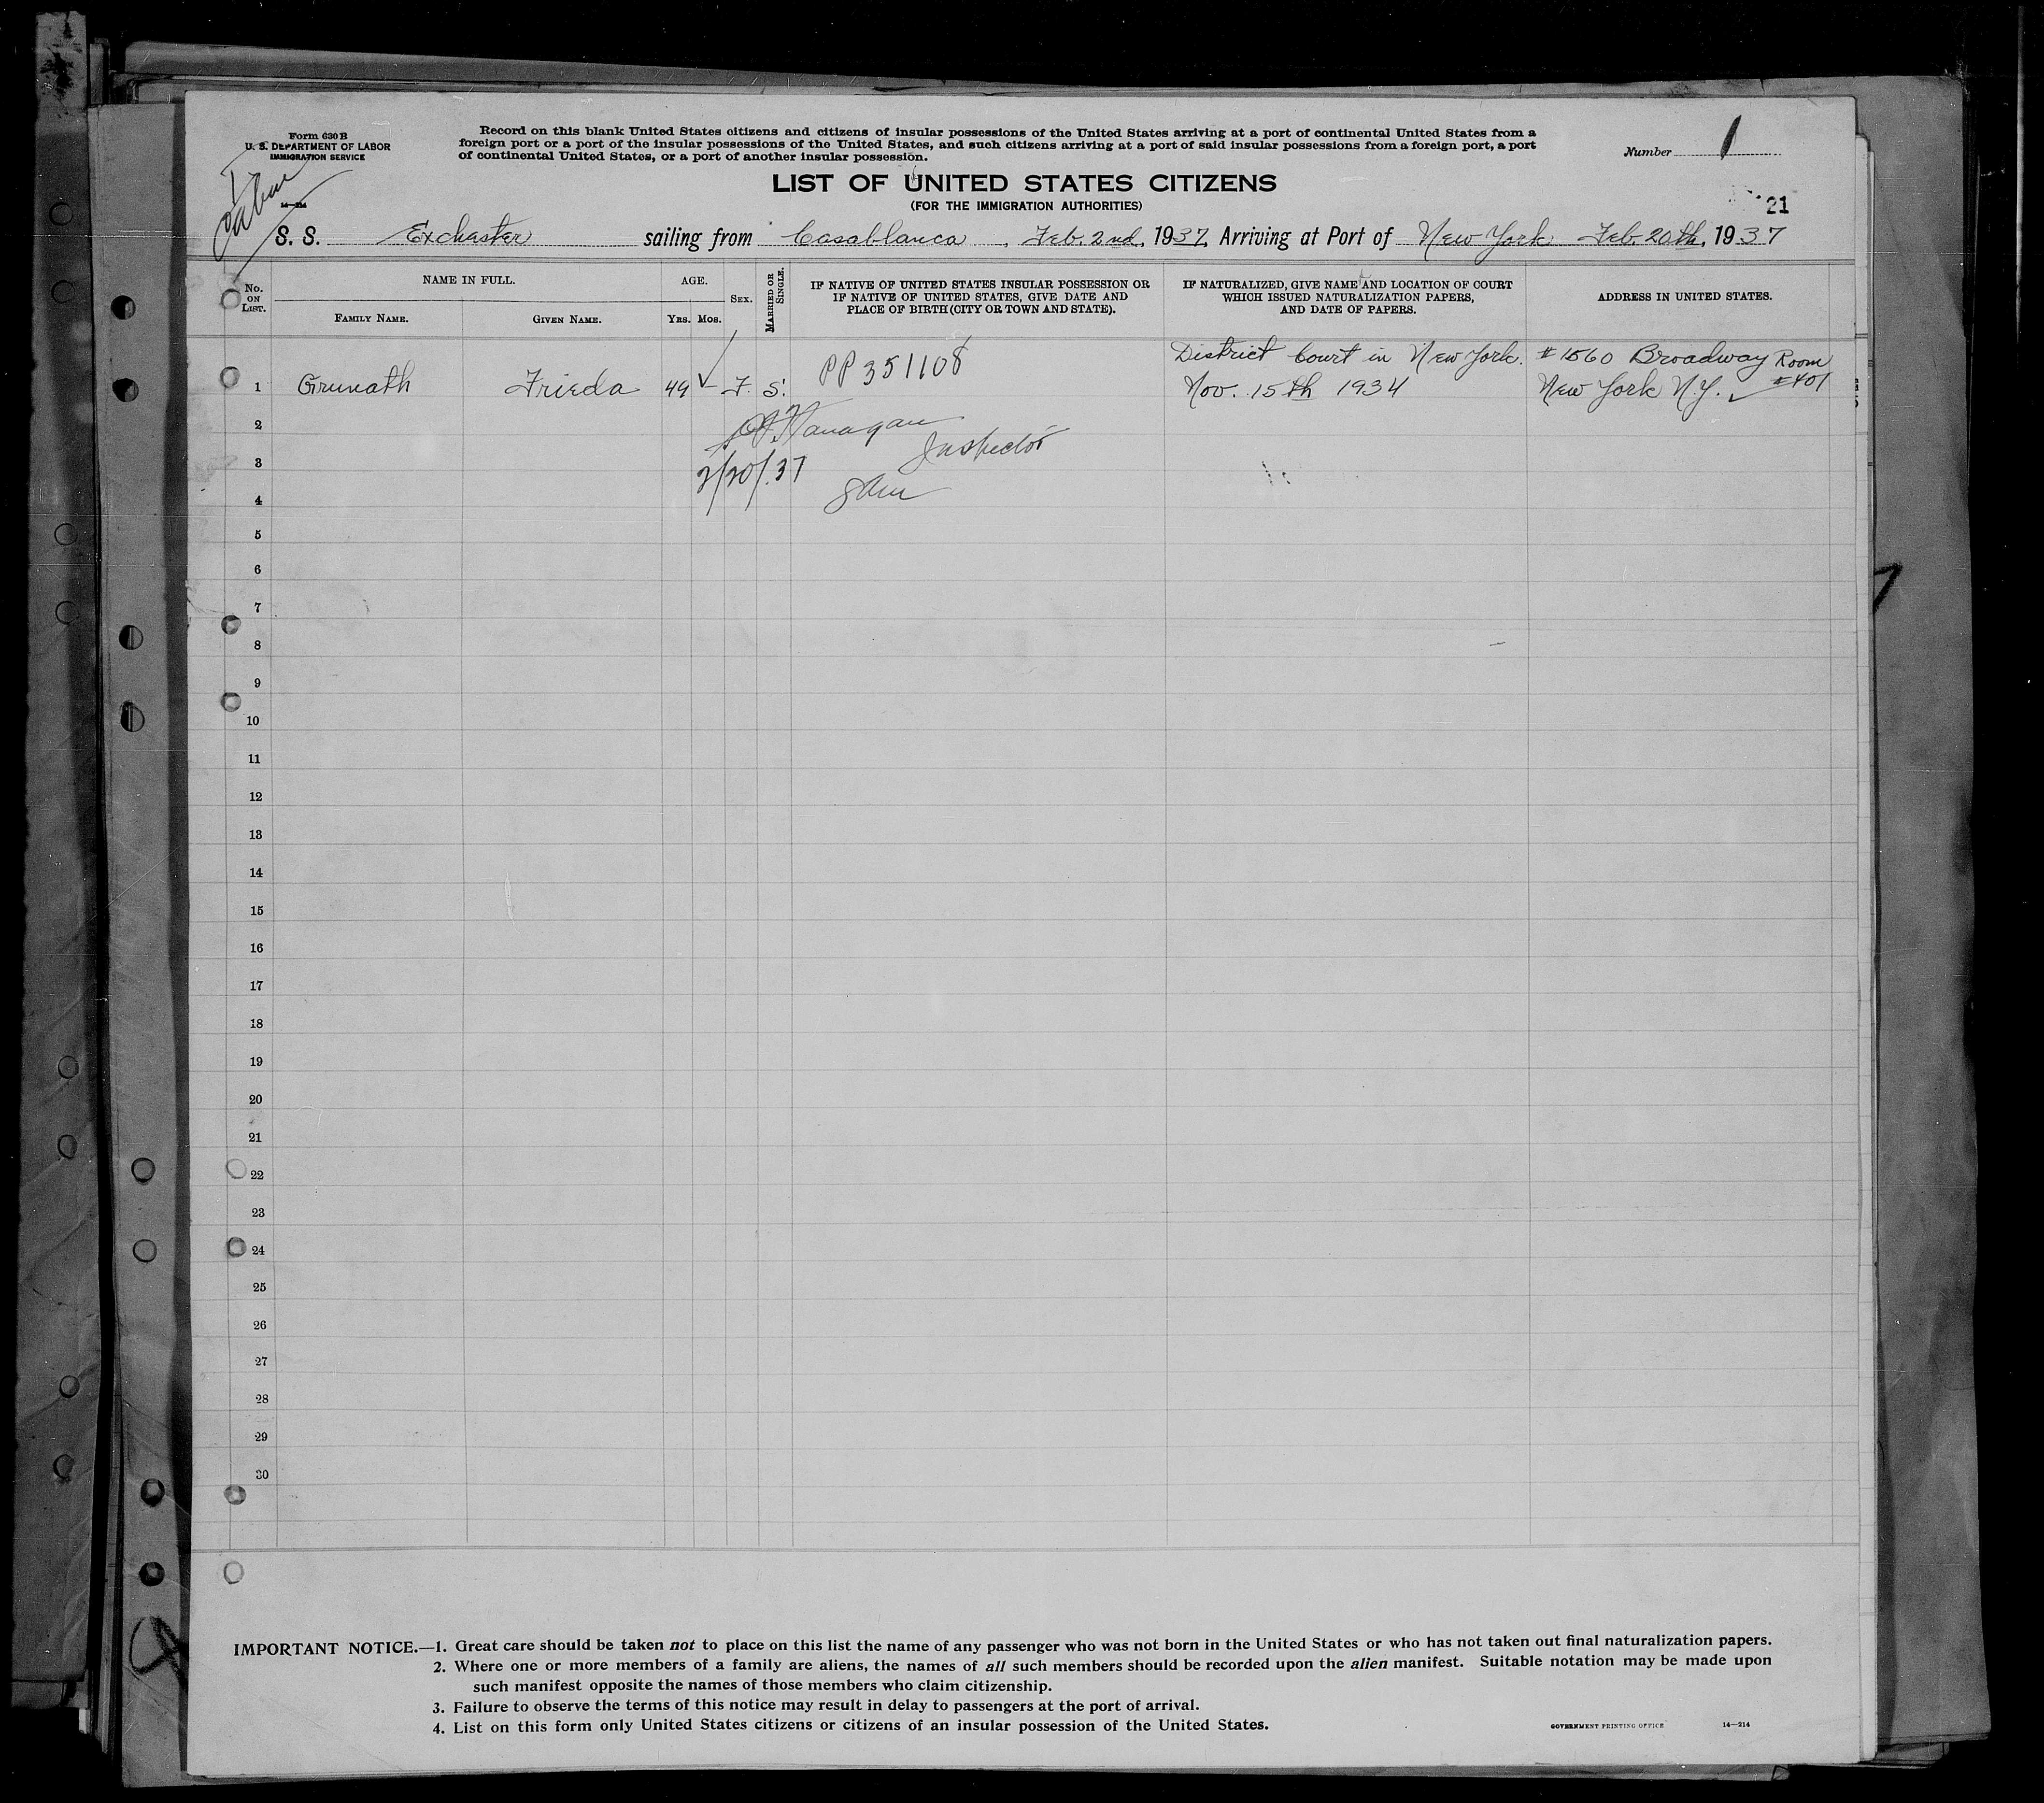 Form 630 B
U. S. DEPARTMENT OF LABOR
IMMIGRATION SERVICE
14—214
Record on this blank United States citizens and citizens of insular possessions of the United States arriving at a port of continental United States from a
foreign port or a port of the insular possessions of the United States, and such citizens arriving at a port of said insular possessions from a foreign port, a port
of continental United States, or a port of another insular possession.
Number 1
LIST OF UNITED STATES CITIZENS
(FOR THE IMMIGRATION AUTHORITIES)
21
S. S. Exchester sailing from Casablanca, Feb. 2nd, 1937, Arriving at Port of New York Feb. 20th, 1937
No. ON LIST.
NAME IN FULL.
FAMILY NAME.
GIVEN NAME.
AGE.
YRS. MOS.
SEX.
MARRIED OR SINGLE.
IF NATIVE OF UNITED STATES INSULAR POSSESSION OR
IF NATIVE OF UNITED STATES, GIVE DATE AND
PLACE OF BIRTH (CITY OR TOWN AND STATE).
IF NATURALIZED, GIVE NAME AND LOCATION OF COURT
WHICH ISSUED NATURALIZATION PAPERS,
AND DATE OF PAPERS.
ADDRESS IN UNITED STATES.
PP 351108
District Court in New York. #1560 Broadway Room
1 Grunath Frieda 49 F. S. Nov. 15th 1934 New York N.Y. #401
2
Inspector
3 2/20/.37
4
5
6
7
8
9
10
11
12
13
14
15
16
17
18
19
20
21
22
23
24
25
26
27
28
29
30
IMPORTANT NOTICE.—1. Great care should be taken not to place on this list the name of any passenger who was not born in the United States or who has not taken out final naturalization papers.
2. Where one or more members of a family are aliens, the names of all such members should be recorded upon the alien manifest. Suitable notation may be made upon
such manifest opposite the names of those members who claim citizenship.
3. Failure to observe the terms of this notice may result in delay to passengers at the port of arrival.
4. List on this form only United States citizens or citizens of an insular possession of the United States.
GOVERNMENT PRINTING OFFICE 14—214